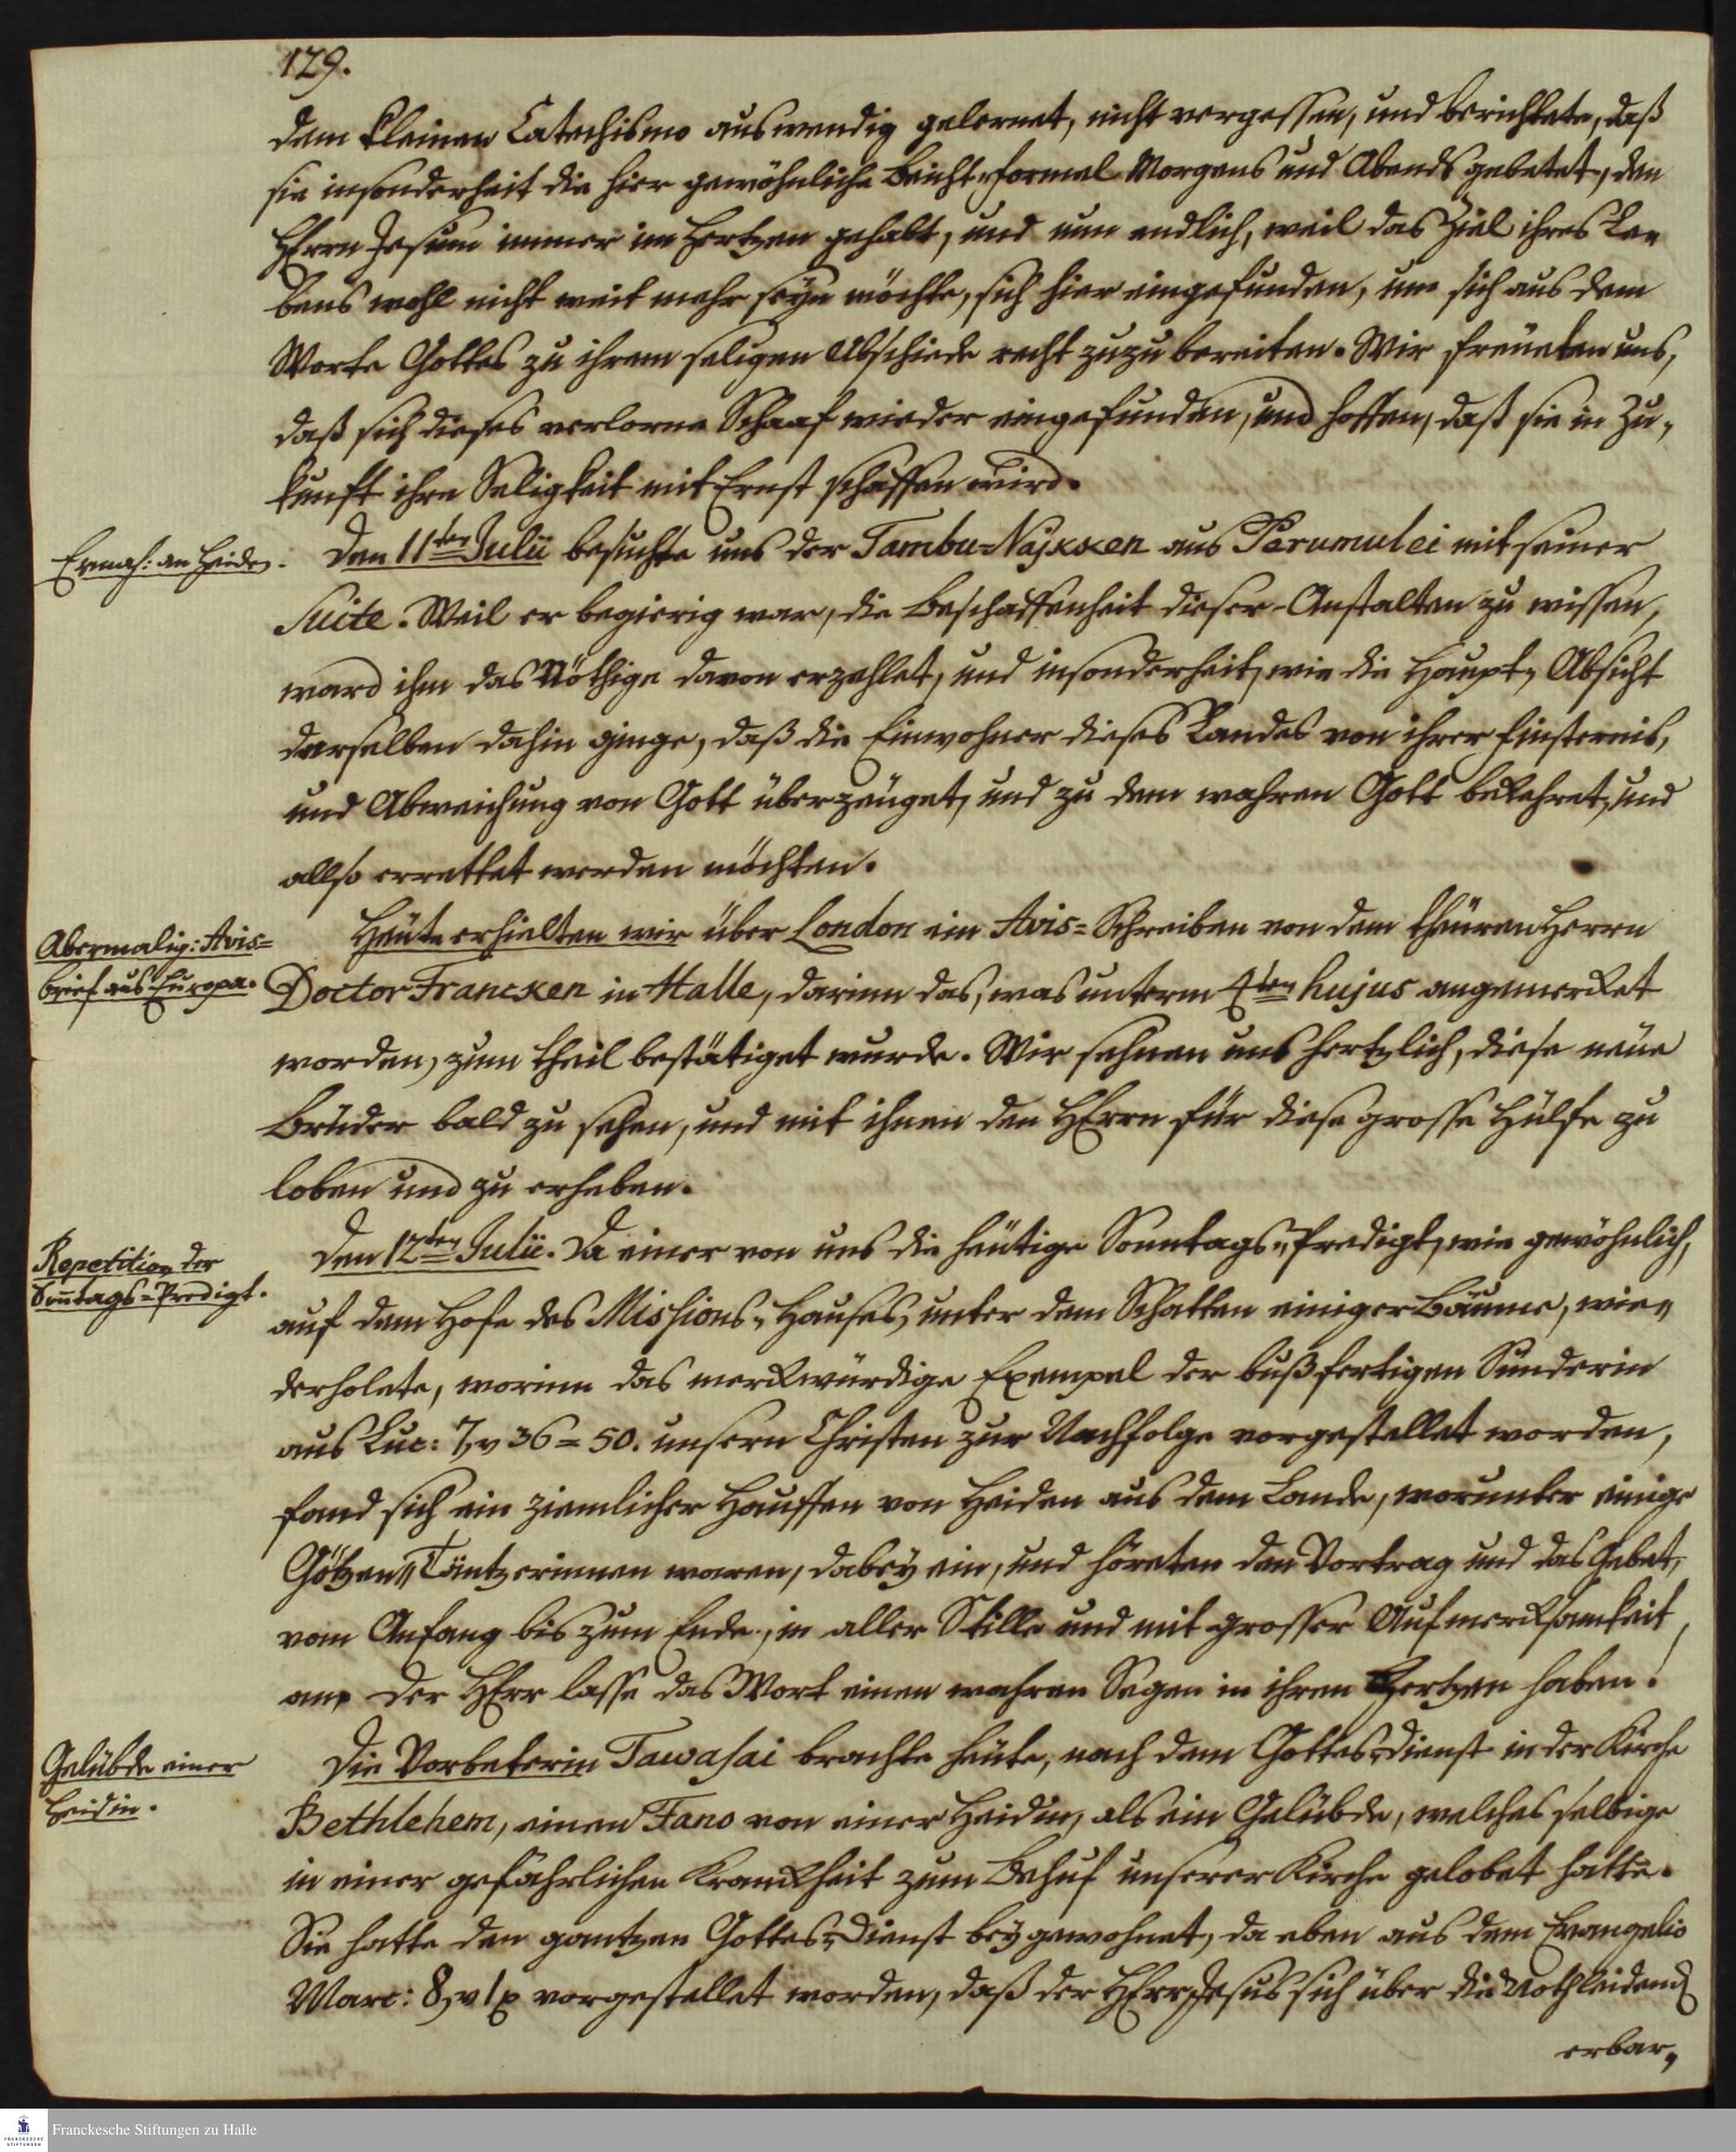 129.
dem kleinen Catechismo auswendig gelernet, nicht vergessen, und berichtete, daß
sie insonderheit die hier gewöhnliche Beicht-formel Morgens und Abends gebetet, den
HErrn Jesum immer im Hertzen gehabt, und nun endlich, weil das Ziel ihres Le-
bens wohl nicht weit mehr seyn möchte, sich hier eingefunden, um sich aus dem
Worte Gottes zu ihrem seligen Abschiede recht zuzubereiten. Wir freüeten uns,
daß sich dieses verlorne Schaaf wieder eingefunden, und hoffen, daß sie in Zu-
kunft ihre Seligkeit mit Ernst schaffen wird.
Ermah: an Heiden.
Den 11ten Julii besuchte uns der Tambu-Najkken aus Perumulei mit seiner
Suite. Weil er begierig war, die Beschaffenheit dieser Anstalten zu wissen,
ward ihm das Nöthige davon erzehlet, und insonderheit, wie die Haupt-Absicht
derselben dahin ginge, daß die Einwohner dieses Landes von ihrer Finsternis,
und Abweichung von Gott überzeüget, und zu dem wahren Gott bekehret, und
allso errettet werden möchten.
Abermalig: Avis=
brief aus Europa.
Heüte erhielten wir über London ein Avis=Schreiben von dem theüren Herrn
Doctor Francken in Halle, darinn das, was unterm 4ten hujus angemerket
worden, zum theil bestätiget wurde. Wir sehnen uns hertzlich, diese neüe
Brüder bald zu sehen, und mit ihnen den HErrn für diese grosse Hülfe zu
loben und zu erheben.
Repetition der
Soñtags=Predigt.
Den 12ten Julii. Da einer von uns die heütige Sonntags-Predigt, wie gewöhnlich,
auf dem Hofe des Missions-Hauses, unter dem Schatten einiger Bäume, wie-
derholete, worinn das merckwürdige Exempel der bußfertigen Sünderin
aus Luc: 7, v 36=50. unsern Christen zur Nachfolge vorgestellet worden,
fand sich ein ziemlicher Hauffen von Heiden aus dem Lande, worunter einige
Götzen-Täntzerinnen waren, dabey ein, und höreten den Vortrag und das Gebet,
vom Anfang bis zum Ende, in aller Stille und mit grosser Aufmercksamkeit
an. Der HErr lasse das Wort einen wahren Segen in ihren Hertzen haben!
Gelübde einer
Heidin.
Die Vorbeterin Tawasai brachte heüte, nach dem Gottes-dienst in der Kirche
Bethlehem, einen Fano von einer Heidin, als ein Gelübde, welches selbige
in einer gefährlichen Kranckheit zum Behuf unserer Kirche gelobet hatte.
Sie hatte den gantzen Gottes-Dienst beygewohnet, da eben aus dem Evangelio
Marc: 8, v 1 p vorgestellet worden, daß der HErr Jesus sich über die Nothleidend
erbar-
Franckesche Stiftungen zu Halle